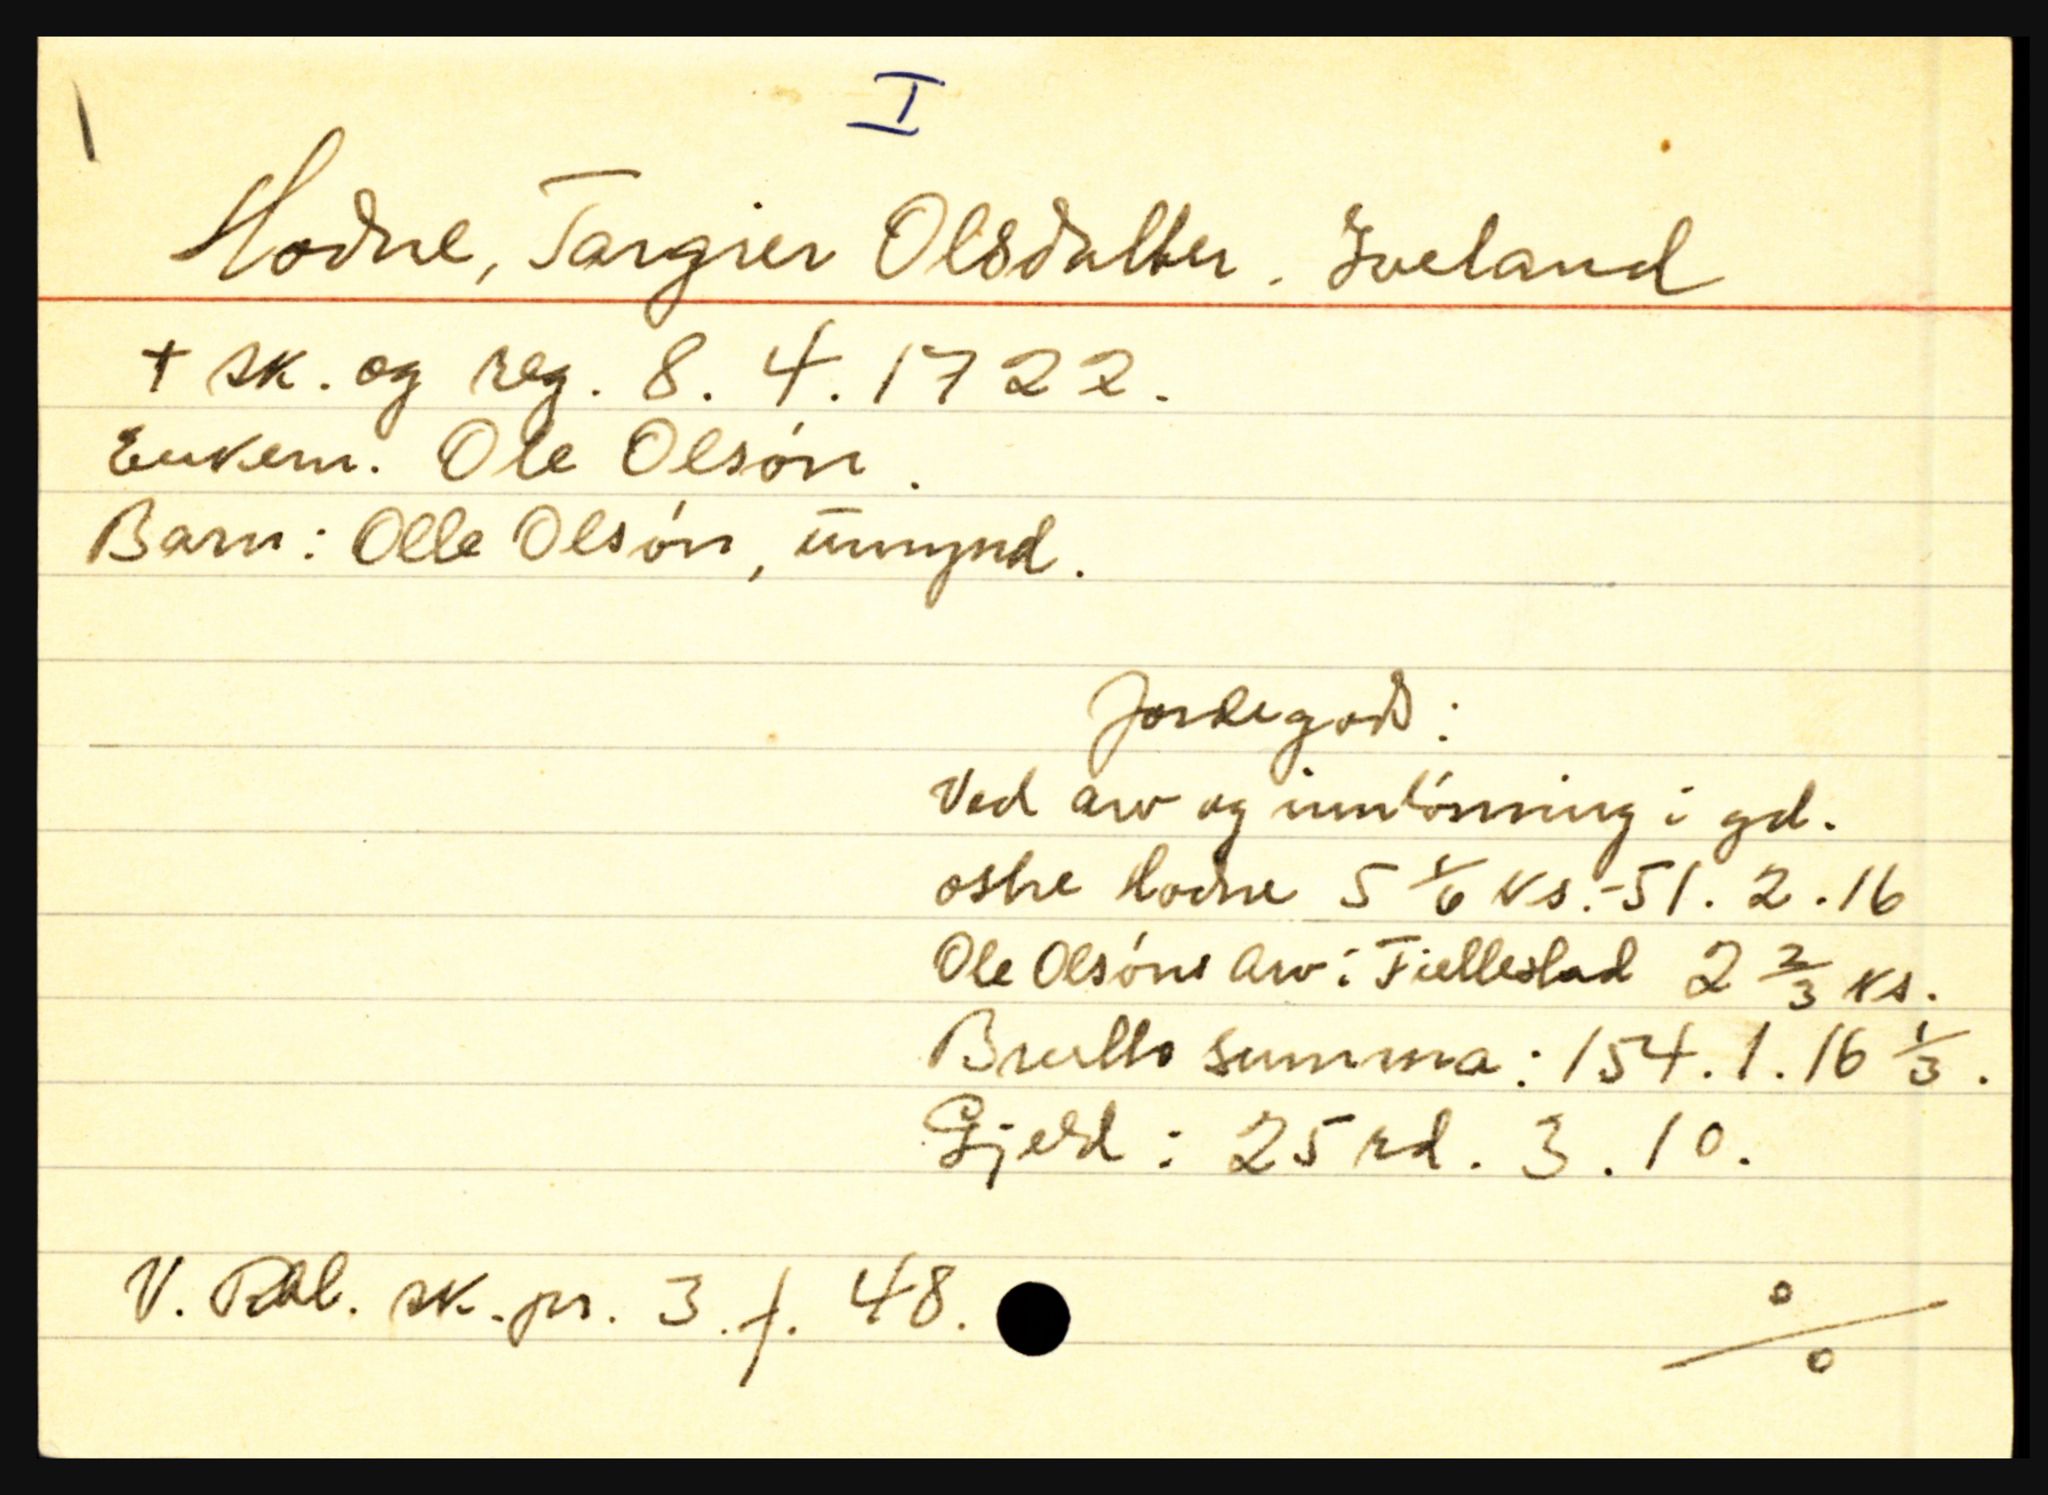 I
Hodne, Targier Olsdatter. Iveland
† sk. og reg. 8. 4. 1722.
Enkem. Ole Olsón.
Barn: Olle Olsón, umynd.
Jordegods:
Ved arv og innlósning i gd.
ostre Hodne 5 1/6 ks. - 51. 2. 16
Ole Olsóns arv i Fiellestad 2 2/3 ks.
Brutto summa: 154. 1. 16 1/3.
Gjeld: 25 rd. 3. 10.
V. Rbl. sk. pr. 3. f. 48.
%